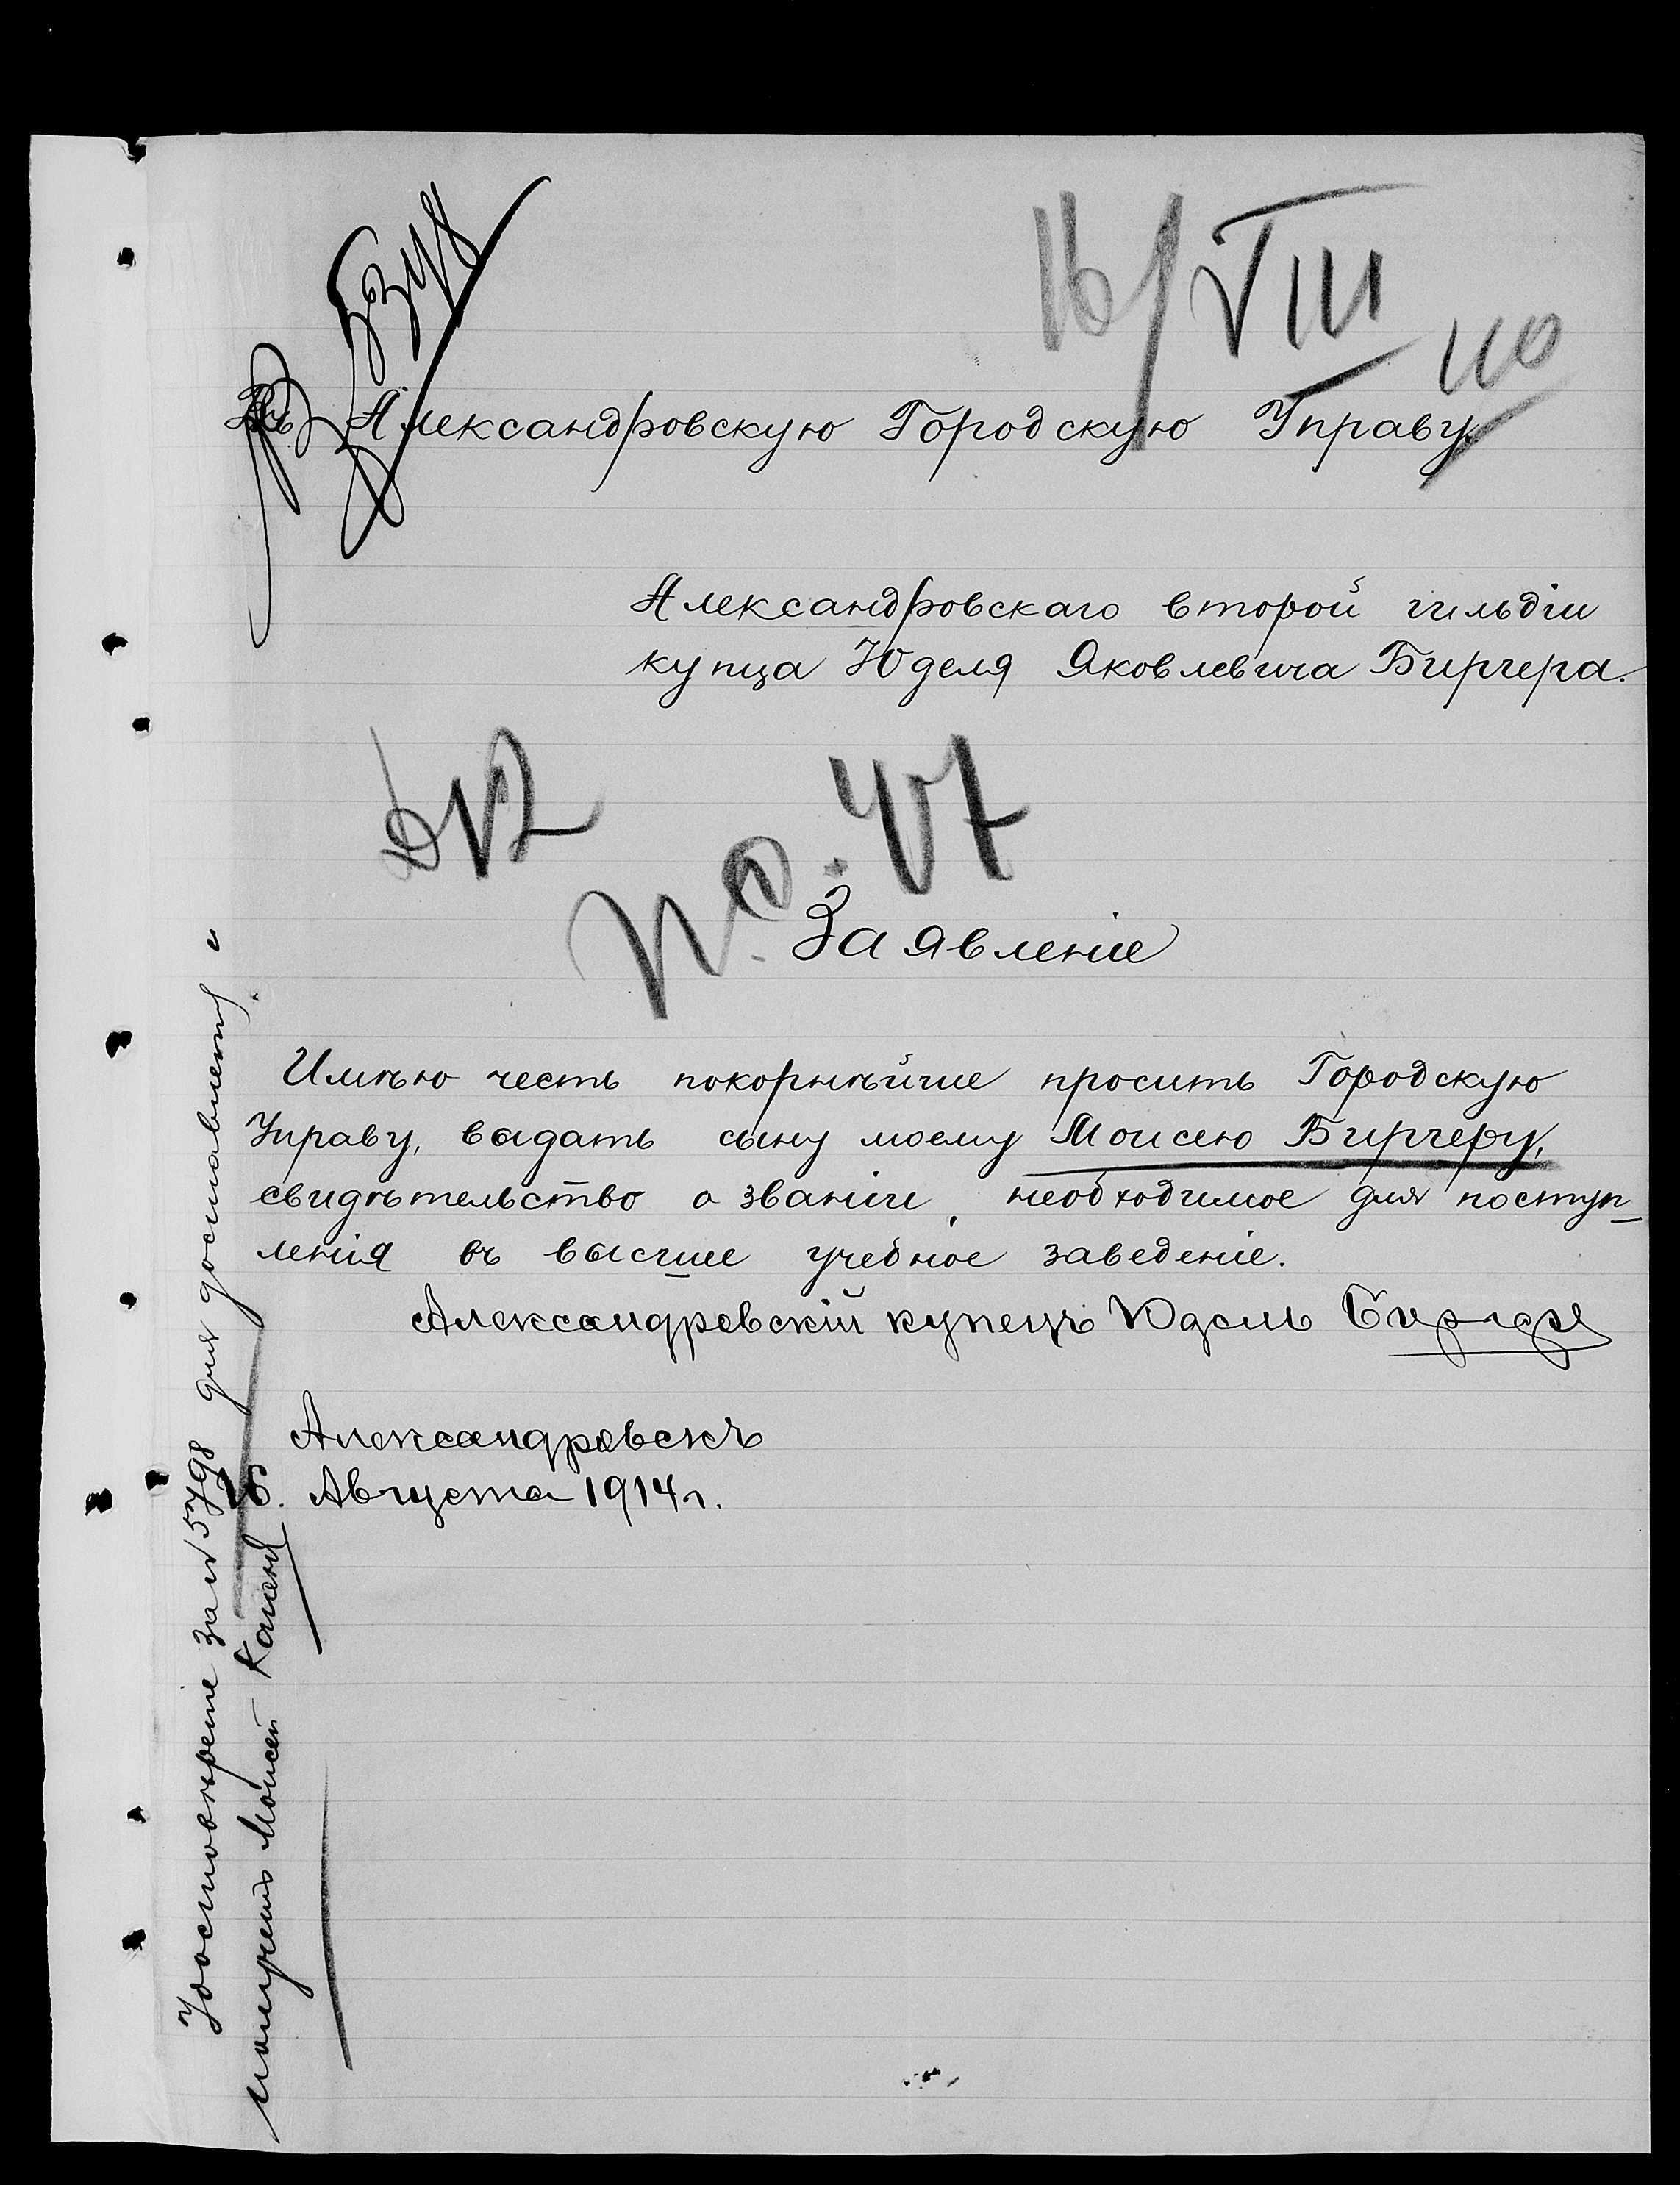 16/VIII
110
Въ Александровскую Городскую Управу.
Александровскаго второй гильдіи
купца Юделя Яковлевича Биргера.
№. 407
Заявленіе
Имѣю честь покорнѣйше просить Городскую
Управу, выдать сыну моему Моисею Биргеру,
свидѣтельство о званіи, необходимое для поступ_
ленія въ высшее учебное заведеніе.
Александровскій купецъ Юдель Биргеръ
Александровскъ
Августа 1914 г.
Удостовѣреніе за № 5798 для доставленія
получилъ Моисей